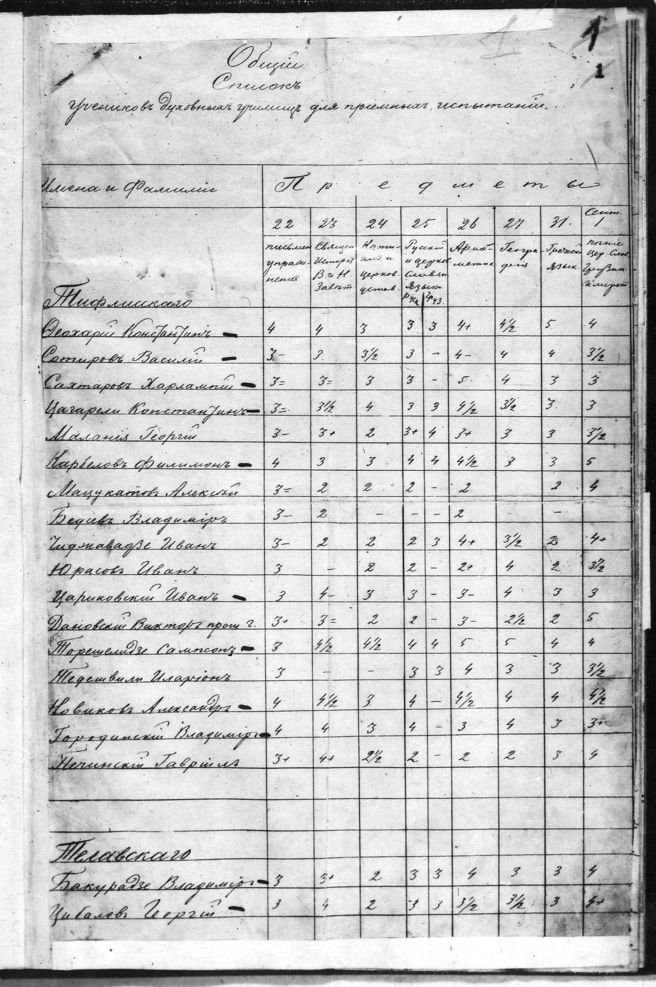 1
1
Общій
Списокъ
учениковъ духовныхъ училищъ для пріемныхъ испытаній.
Имена и Фамиліи Предметы
22 23 24 25 26 27 31. Сент. 1
письмен упраж- ненія Священ Исторія В и Н Завѣта Кати- и церков устав. Русскій и церков Славян языкъ Ариѳ- метика Геогра- фія Греческій языкъ пѣніе цер Слав Грузин
Тифлисскаго
Ѳеохарій Константинъ – 4 4 3 3 3 4+ 4½ 5 4
Сотировъ Василій – 3– 3 3½ 3 – 4– 4 4 3½
Сахтаровъ Харлампій – 3= 3= 3 3 – 5 4 3 3
Цагарели Константинъ – 3= 3½ 4 3 3 4½ 3½ 3 3
Маланія Георгій 3– 3+ 2 3+ 4 3+ 3 3 3½
Карбеловъ Филимонъ – 4 3 3 4 4 4½ 3 3 5
Мацукатовъ Алексѣй 3= 2 2 2 – 2 2 4
Бедіевъ Владиміръ 3– 2 – – – 2 –
Чиджавадзе Иванъ 3– 2 2 2 3 4+ 3½ 2 4+
Юрасовъ Иванъ 3 – 2 2 – 2+ 4 2 3½
Цариковскій Иванъ – 3 4– 3 3 – 3– 4 3 3
Дановскій Викторъ прош г. 3+ 3= 2 2 – 3– 2½ 2 5
Торешелидзе Сампсонъ – 3 4½ 4½ 4 4 5 5 4 4
Тедешвили Иларіонъ 3 – – 3 3 4 3 3 3½
Новиковъ Александръ – 4 4½ 3 4 – 4½ 4 4 4½
Городинскій Владиміръ – 4 4 3 4 – 3 4 3 3+
Печинскій Гавріилъ 3+ 4+ 2½ 2 – 2 2 3 4
Телавскаго
Бакурадзе Владиміръ – 3 3+ 2 3 3 4 3 3 4
Циваловъ Георгій – 3 4 2 3 3 3½ 3½ 3 4+